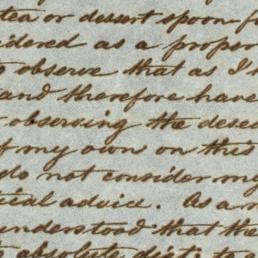 tea or dessert spoon f
idered as a proper
o observe that as I
and therefore have
observing the dese
f my own on this
do not consider my
cial advice. As a m
understood that the
absolute diet, to